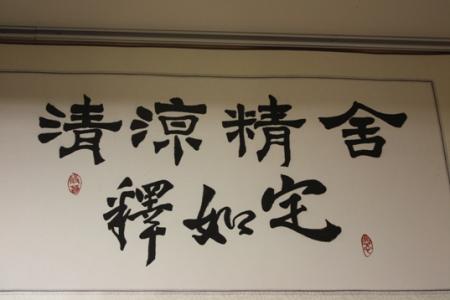 清涼精舍
釋如定